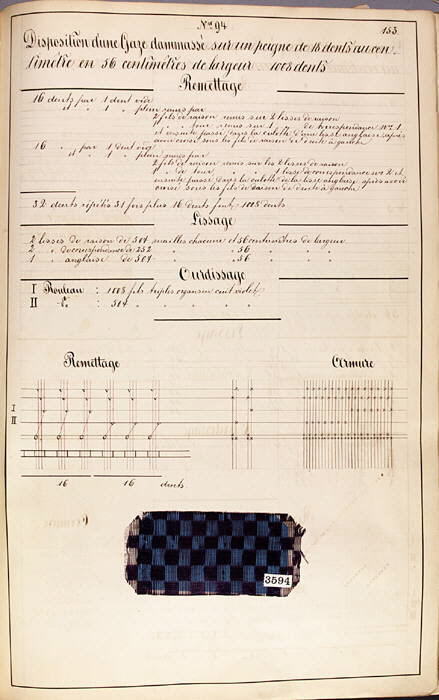 Nro 94
153.
Disposition d'une Gaze dammassé sur un peigne de 18 dents au cen-
timètre en 56 centimètres de largeur 1008 dents
Remettage
16 dents par 1 dent vide
" " 1 " plein remis par
2 fils de raison remis sur 2 lisses de raison
1 " tour remis sur 1 " de correspondance No 1
et ensuite passé dans la culotte d'une lisse anglaise après
avoir croisé sous les fils de raison de droite à gauche
16 " par 1 dent vide
" " 1 " plein remis par
2 fils de raison remis sur les 2 lisses de raison
1 " de tour, " 1 lisse de correspondance No 2 et
ensuite passé dans la culotte de la lisse anglaise après avoir
croisé sous les fils de raison de droite à gauche
32 dents répétés 31 fois plus 16 dents font 1008 dents
Lissage
2 lisses de raison de 504 mailles chacune et 56 centimètres de largeur
2 " de correspondance à 252 " " 56 " " "
1 " anglaise de 504 " " 56 " " "
Ourdissage
I Rouleau : 1008 fils triples organsin cuit violet
II " : 504 " " " "
Remettage
Armure
I
II
16 16 dents
3594